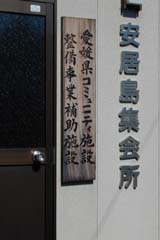 安居島集会所
愛媛県コミュニティ施設
整備事業補助施設